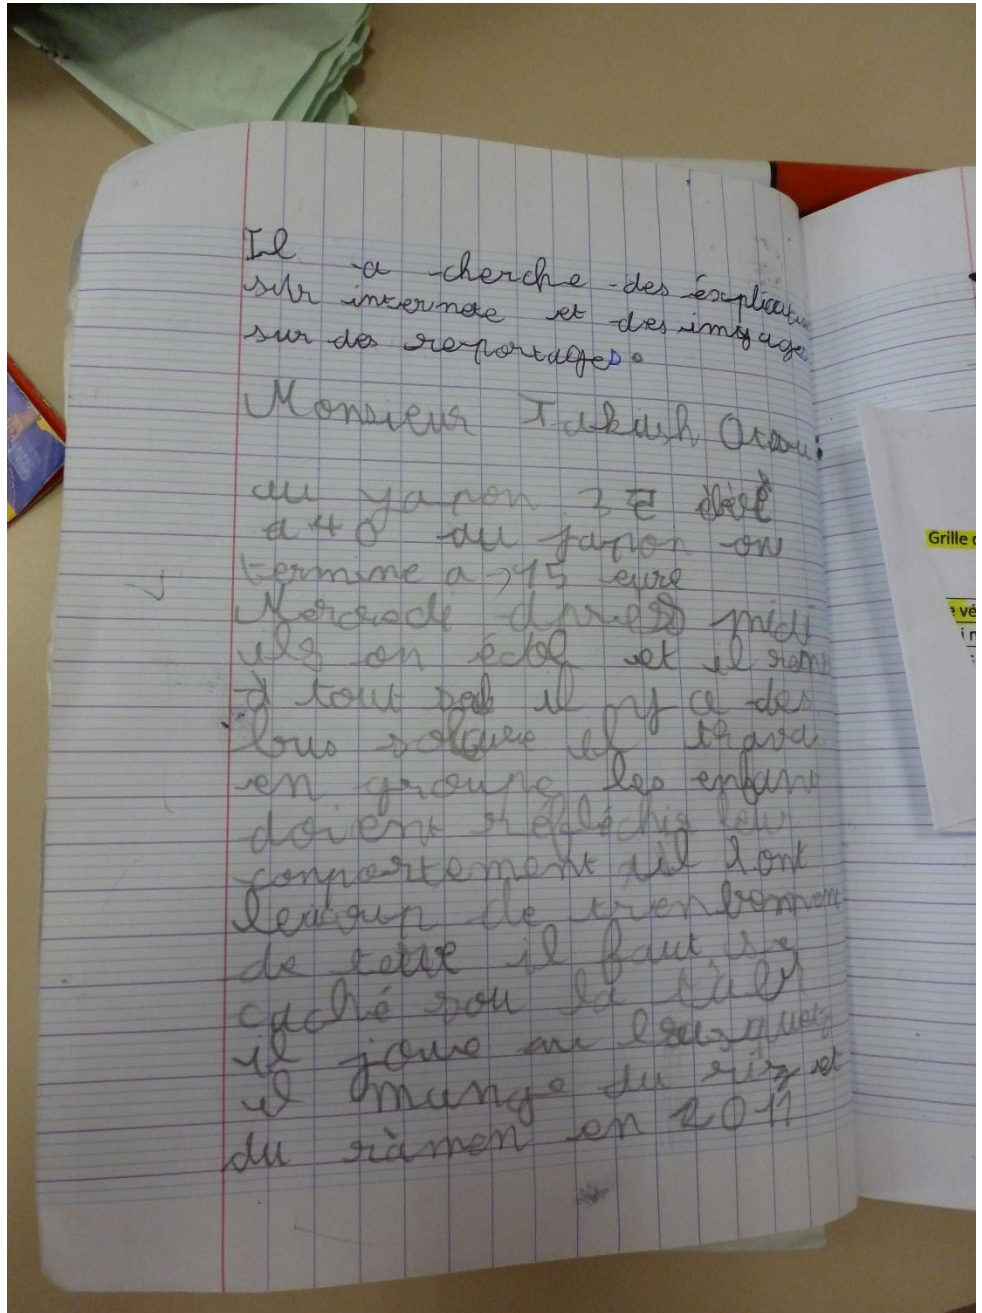 Il a cherche des éxplicatio
sur internete et des imyages
sur des reportages.
Monsieur Takush :
au yapon 35 élèe
a 40 au japon on
termine a 15 eure
Mercredi apres midi
ils on école et il
à tout il y a des
bus il trava
en groupe les enfant
doivent réfléchir leu
comportement il sont
beaucoup de trenbement
de terre il faut se
caché sou la table
il joue au basquet
il mange du riz et
du ràmen en 2011
Grille
e vé
i n